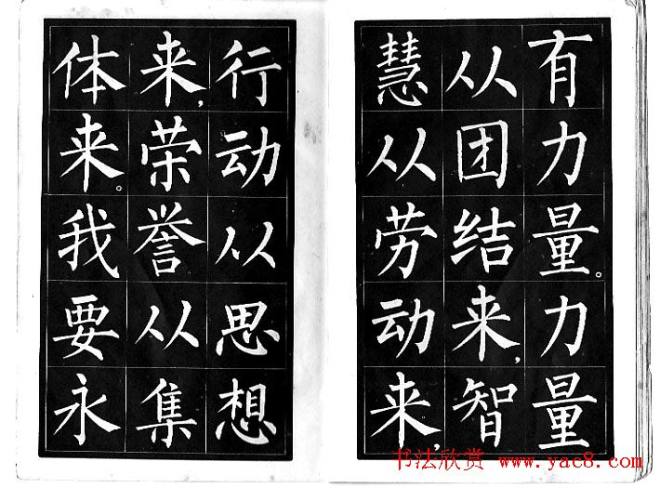 有力量。力量
从团结来，智
慧从劳动来，
行动从思想
来，荣誉从集
体来。我要永
书法欣赏 www.yac8.com